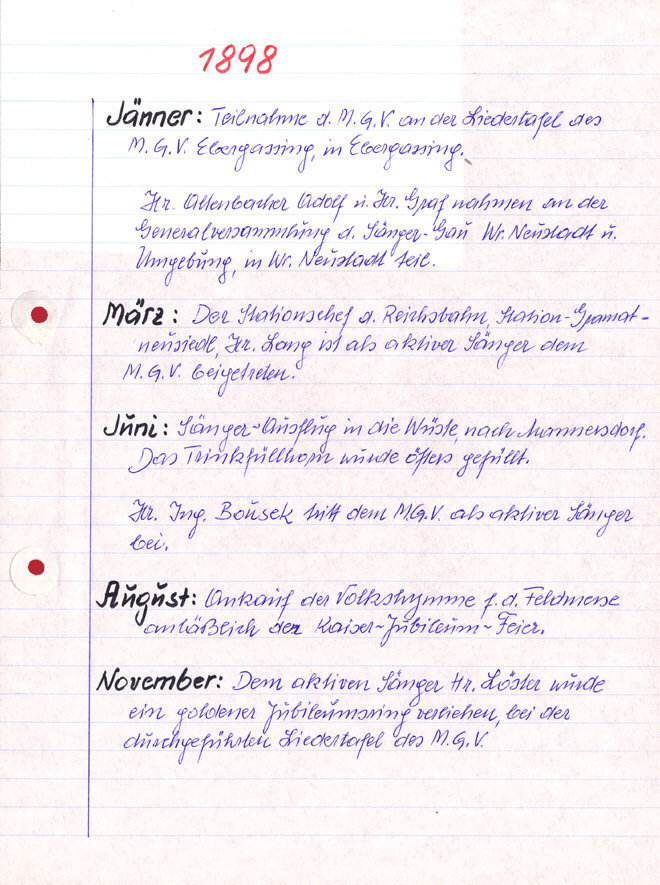 1898
Jänner: Teilnahme d. M.G.V. an der Liedertafel des
M.G.V. Ebergassing, in Ebergassing.
Hr. Altenbacher Adolf u. Hr. Graf nahmen an der
Generalversammlung d. Sänger-Gau Wr. Neustadt u.
Umgebung, in Wr. Neustadt teil.
März: Der Stationschef d. Reichsbahn, Station-Gramat-
neusiedl, Hr. Lang ist als aktiver Sänger dem
M.G.V. beigetreten.
Juni: Sänger-Ausflug in die Wüste, nach Mannersdorf.
Das Trinkfüllhorn wurde öfters gefüllt.
Hr. Ing. Bousek tritt dem M.G.V. als aktiver Sänger
bei.
August: Ankauf der Volkshymme f. d. Feldmesse
anläßlich der Kaiser-Jubileum-Feier.
November: Dem aktiven Sänger Hr. Löster wurde
ein goldener Jubileumsring verliehen, bei der
durchgeführten Liedertafel des M.G.V.